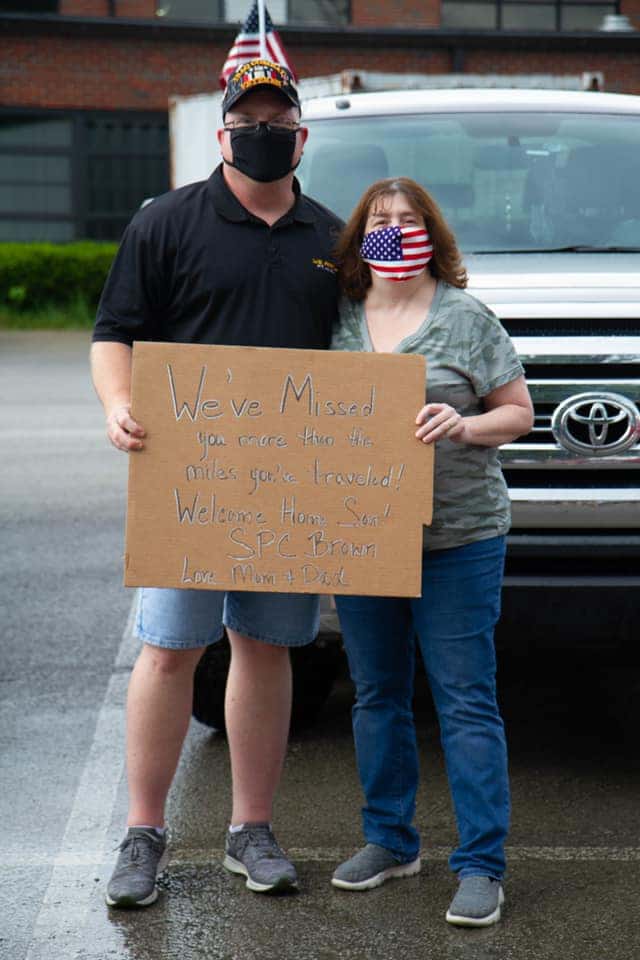 We've Missed
you more than the
miles you've traveled!
Welcome Home Son!
SPC Brown
Love Mom + Dad